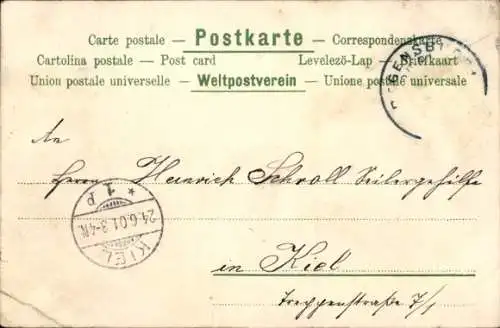 Carte postale — Postkarte — Correspondenzkarte
Cartolina postale — Post card Levelező-Lap — Briefkaart
Union postale universelle — Weltpostverein — Unione postale universale
An
Herrn Heinrich Schroll Seilergehilfe
in Kiel
Treppenstraße 7/I
KIEL
1 P
24.6.01.3-4N.